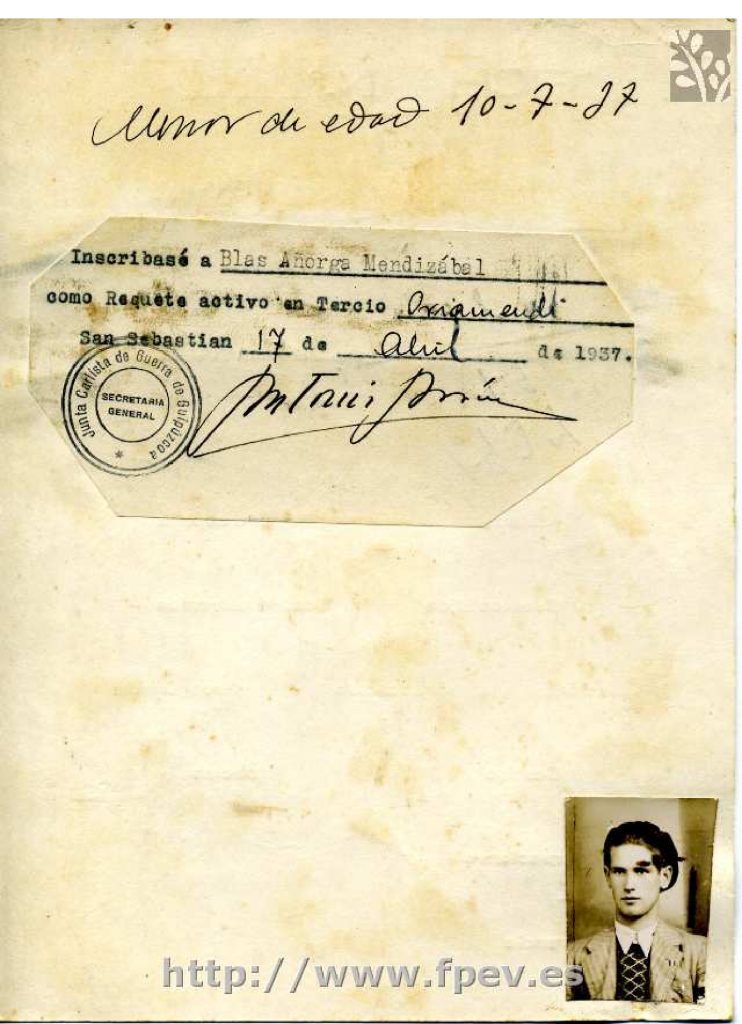 Menor de edad 10-7-37
Inscribasé a Blas Añorga Mendizábal
como Requeté activo en Tercio Oriamendi
San Sebastian 17 de Abril de 1937.
Junta Carlista de Guerra de Guipúzcoa
SECRETARIA
GENERAL
Antonio
http://www.fpev.es